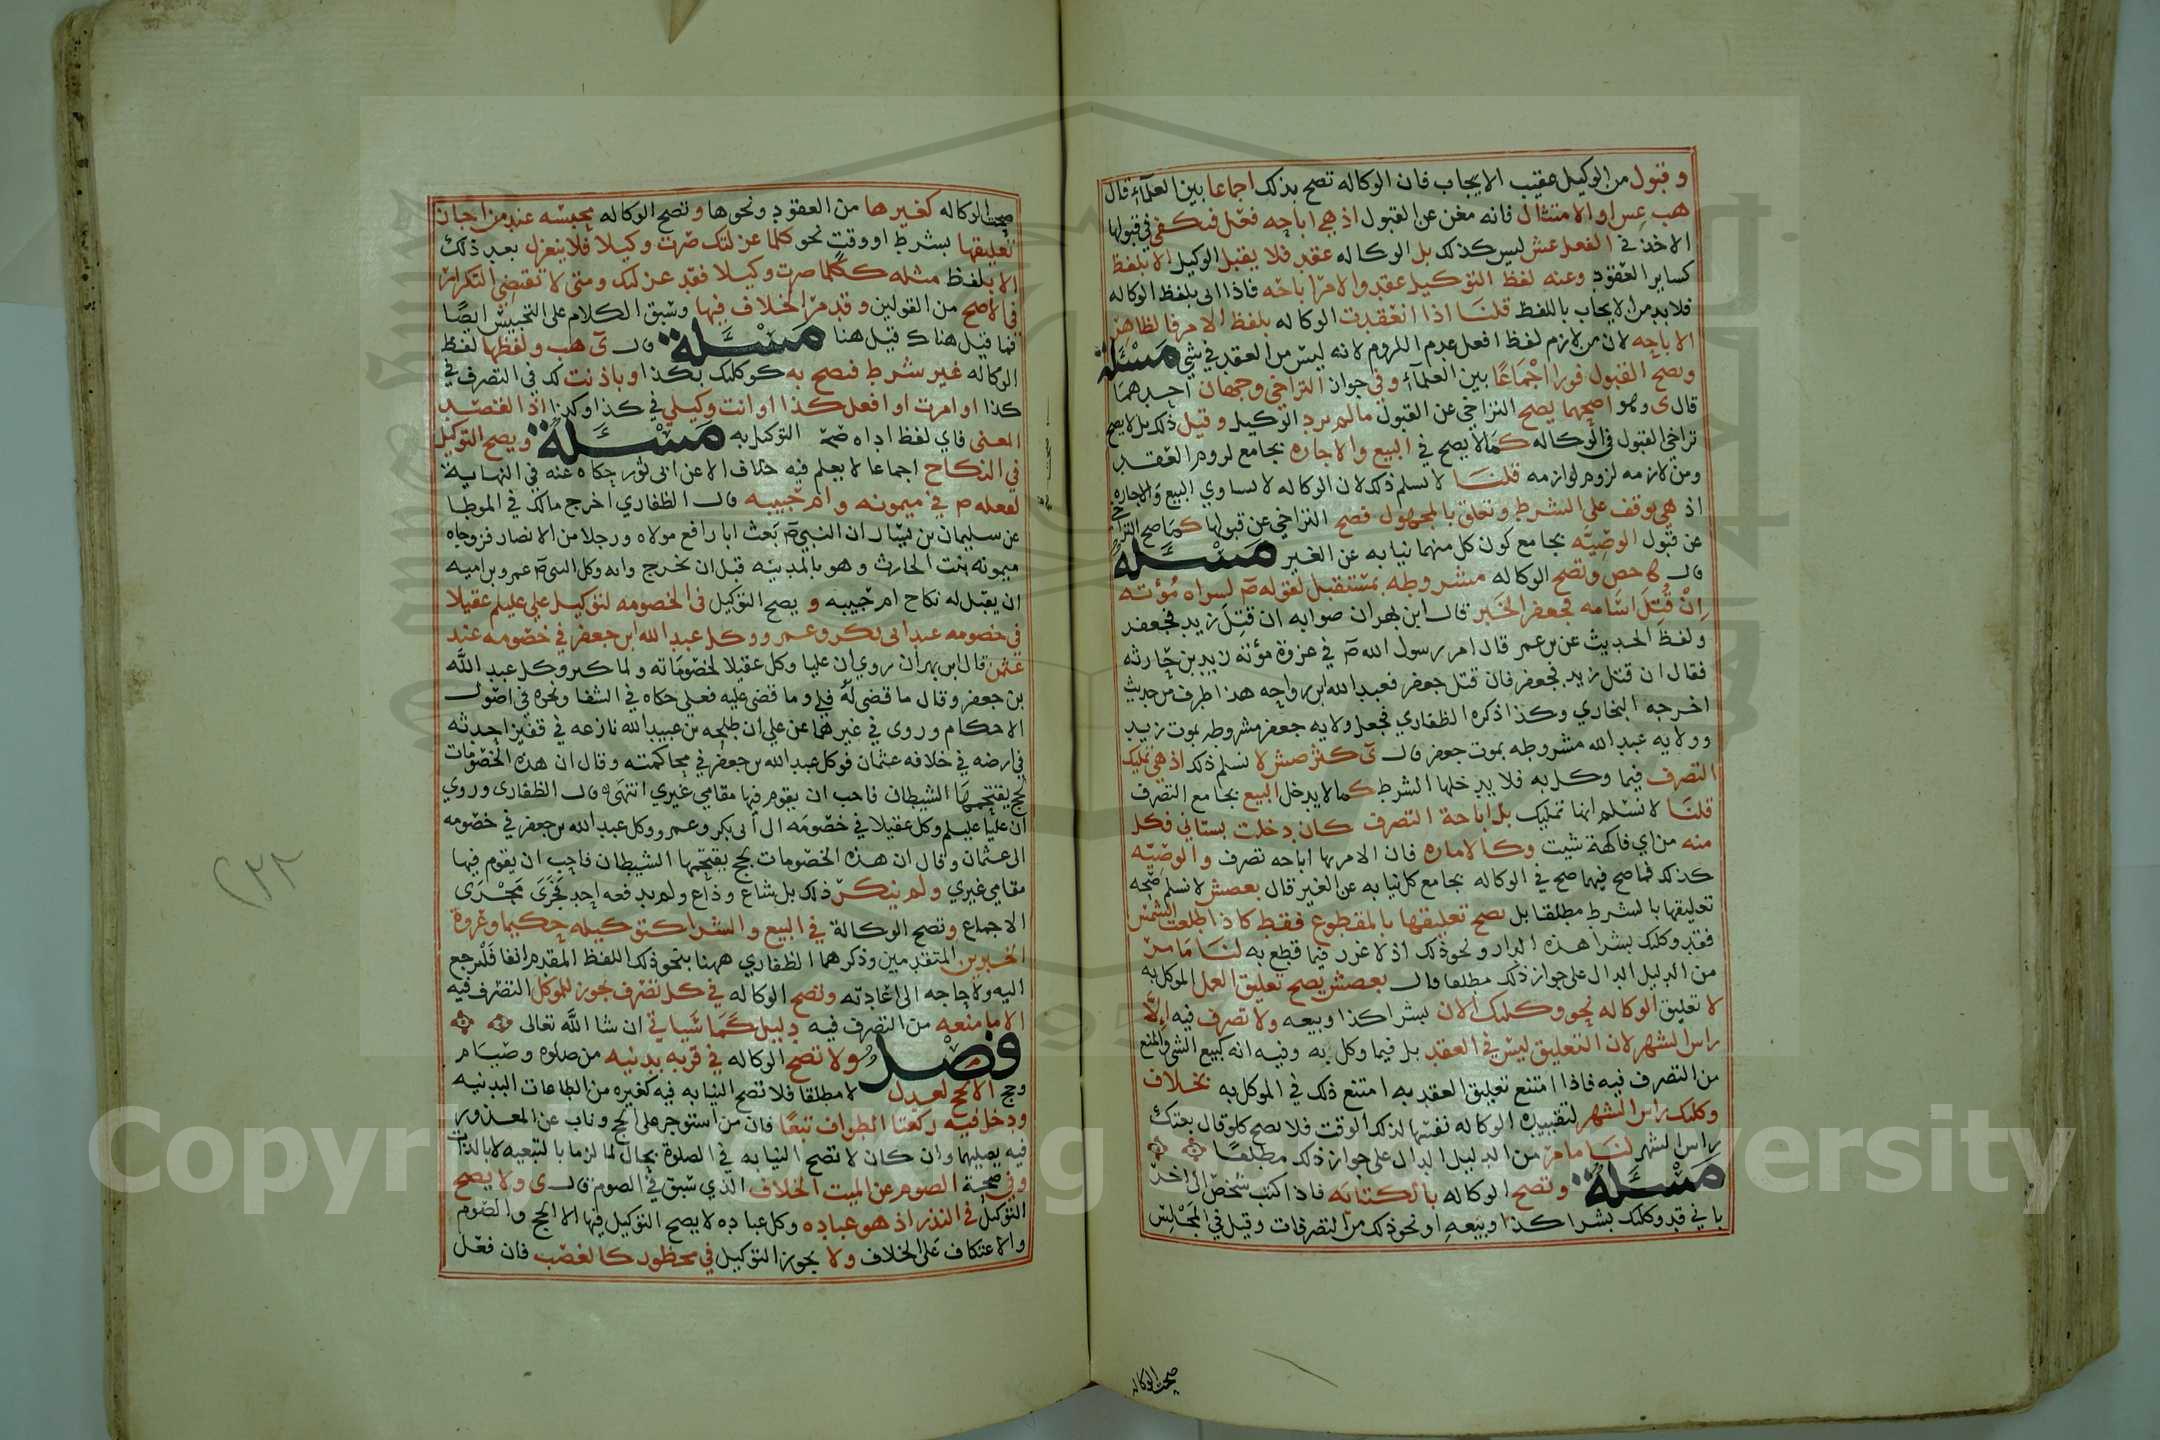 وقبول من الوكيل عقيب الايجاب فان الوكاله تصح بذلك اجماعا بين العلمآء قال
هب عس او الامتثال فانه مغن عن القبول اذ هي اباحه فعل فتكفي في قبولها
الاخذ في الفعل عش ليس كذلك بل الوكاله عقد فلا يقبل الوكيل الا بلفظ
كساير العقود وعنه لفظ التوكيل عقد والامر اباحه فاذا اتى بلفظ الوكاله
فلا بد من الايجاب باللفظ قلنا اذا انعقدت الوكاله بلفظ الامر فالظاهر
الاباحه لان من لازم لفظ افعل عدم اللزوم لانه ليس من العقد في شي مسئلة
ويصح القبول فورا اجماعا بين العلمآء وفي جواز التراخي وجهان احدهما
قال ى وهو اصحهما يصح التراخي عن القبول مالم يرد التوكيل وقيل ذلك بل لا يصح
تراخي القبول في الوكاله كما لا يصح في البيع والاجاره بجامع لزوم العقد
ومن لازمه لزوم لوازمه قلنا لا نسلم ذلك لان الوكاله لا تساوي البيع والاجاره
اذ هي توقف على الشرط وتعلق بالمجهول فصح التراخي عن قبولها كما صح التراخي
عن قبول الوصيه بجامع كون كل منهما نيابه عن الغير مسئلة
قال ح ص وتصح الوكاله مشروطه بمستقبل لقوله صَ لسراه مُؤته
اِنْ قُتِلَ اسامه فجعفر الخبر قال ابن بهران صوابه ان قتِل زيد فجعفر
ولفظ الحديث عن بن عمر قال امر رسول الله صَ في غزوة مؤته زيد بن حارثه
فقال ان قتل زيد فجعفر فان قتل جعفر فعبد الله ابن رواحه هذا طرف من حديث
اخرجه البخاري وكذا ذكره الظفاري فجعل ولايه جعفر مشروطه بموت زيد
وولايه عبد الله مشروطه بموت جعفر قال ى كثر صش لا نسلم ذلك اذ هي تمليك
التصرف فيما وكل به فلا يدخلها الشرط كما لا يدخل البيع بجامع التصرف
قلنا لا نسلم انها تمليك بل اباحة التصرف كان دخلت بستاني فكل
منه من اي فاكهة شيت وكالاماره فان الامر بها اباحه تصرف والوصيّه
كذلك فما صح فيهما صح في الوكاله بجامع كل نيابه عن الغير قال بعصش لا نسلم صحه
تعليقها بالشرط مطلقا بل يصح تعليقها بالمقطوع فقط كاذا طلعت الشمس
فقد وكلتك بشرا هذه الدار ونحو ذلك اذ لا غرر فيما قطع به لنا ما مر
من الدليل الدال على جواز ذلك مطلقا قال بعصش يصح تعليق العمل الموكل به
لا تعليق الوكاله نحو وكلتك الان بشرا كذا وبيعه ولا تصرف فيه الا
راس الشهر لان التعليق ليس في العقد بل فيما وكل به وفيه انه كبيع الشي والمنع
من التصرف فيه فاذا امتنع تعليق العقد به امتنع ذلك في الموكل به بخلاف
وكلتك راس الشهر لتقييده الوكاله نفسها لذلك الوقت فلا يصح كلو قال بعتك
راس الشهر لنا ما مر من الدليل الدال على جواز ذلك مطلقًا
مسئلة وتصح الوكاله بالكتابه فاذا كتب شخص الى اخر
باني قد وكلتك بشرا كذا وبيعه او نحو ذلك من التصرفات وقيل في المجلِس
صحت الوكاله
صحت الوكاله كغيرها من العقود ونحوها وتصح الوكاله بحبسه عند من اجاز
تعليقها بشرط او وقتٍ نحو كلما عزلتك صرت وكيلا فلا ينعزل بعد ذلك
الا بلفظ مثله ككلما صرت وكيلا فقد عزلتك ومتى لا تقتضي التكرار
في الاصح من القولين وقد مر الخلاف فيها وسَبق الكلام على التحبيس ايضًا
فما قيل هناك قيل هنا مسئلة قال ى هب ولفظها لفظ
الوكاله غير شرط فتصح به كوكلتك بكذا وباذنت لك في التصرف في
كذا او امرت او افعل كذا او انت وكيلي في كذا وكذا اذ القصد
المعنى فاي لفظ اداه صَحّ التوكيل به مسئلة ويصح التوكيل
في النكاح اجماعا لا يعلم فيه خلاف الا عن ابى ثور حكاه عنه في النهاية
لفعله صَ في ميمونه وام حبيبه قال الظفاري اخرج مالك في الموطا
عن سليمان بن يسار ان النبي صَ بَعث ابا رافع مولاه ورجلا من الانصار فزوجاه
ميمونه بنت الحارث وهو بالمدينه قبل ان يخرج وانه وكل النبي صَ عمرو بن اميه
ان يقبل له نكاح ام حبيبه ويصح التوكيل في الخصومه لتوكيل علي عليلم عقيلا
في خصومه عند ابى بكر وعمر ووكل عبد الله ابن جعفر في خصومه عند
عثمن قال ابن بهران روي ان عليا وكل عقيلا لخصوماته ولما كبر وكل عبد الله
بن جعفر وقال ما قضى لهُ فلي وما قضى عليه فعلي حكاه في الشفا ونحوه في اصول
الاحكام وروى في غيرهما عن علي ان طلحه بن عبيد الله نازعه في قفيز احدثه
في ارضه في خلافه عثمان فوكل عبد الله بن جعفر في محاكمته وقال ان هذه الخصومات
لحج يقتحمها الشيطان فاحب ان يقوم فيها مقامي غيري انتهى قال الظفارى وروي
ان عليا عليلم وكل عقيلا في خصومه الى ابى بكر وعمر ووكل عبد الله بن جعفر في خصومه
الى عثمان وقال ان هذه الخصومات لحج يقتحمها الشيطان فاحب ان يقوم فيها
مقامي غيري ولم ينكر ذلك بل شاع وذاع ولم يدفعه احد فجرى مَجْرى
الاجماع وتصح الوكالة في البيع والشرا كتوكيله حكيما وعروة
الخبرين المتقدمين وذكرهما الظفاري ههنا بنحو ذلك اللفظ المقدم انفا فليرجع
اليه ولا حاجه الى اعادته وتصح الوكاله في كل تصرف يجوز للموكل التصرف فيه
الا ما منعه من التصرف فيه دليل كما سياتي ان شا الله تعالى
فصل ولا تصح الوكاله في قربه بدنيه من صلوه وصيام
وحج الا لحج لعدل لا مطلقا فلا تصح النيابه فيه كغيره من الطاعات البدنيه
ودخل فيه ركعتا الطواف تبعًا فان من استوجر على الحج وناب عن المعذور
فيه يصليهما وان كان لا تصح النيابه في الصلوة بحال لما لزما بالتبعيه لا بالذات
وفي صحة الصوم عن الميت الخلاف الذي سبق في الصوم قال ى ولا يصح
التوكيل في النذر اذ هو عباده وكل عباده لا يصح التوكيل فيها الا الحج والصوم
والاعتكاف على الخلاف ولا يجوز التوكيل في محظور كالغصب فان فعل
٢٣٨
Copyright © King Saud University